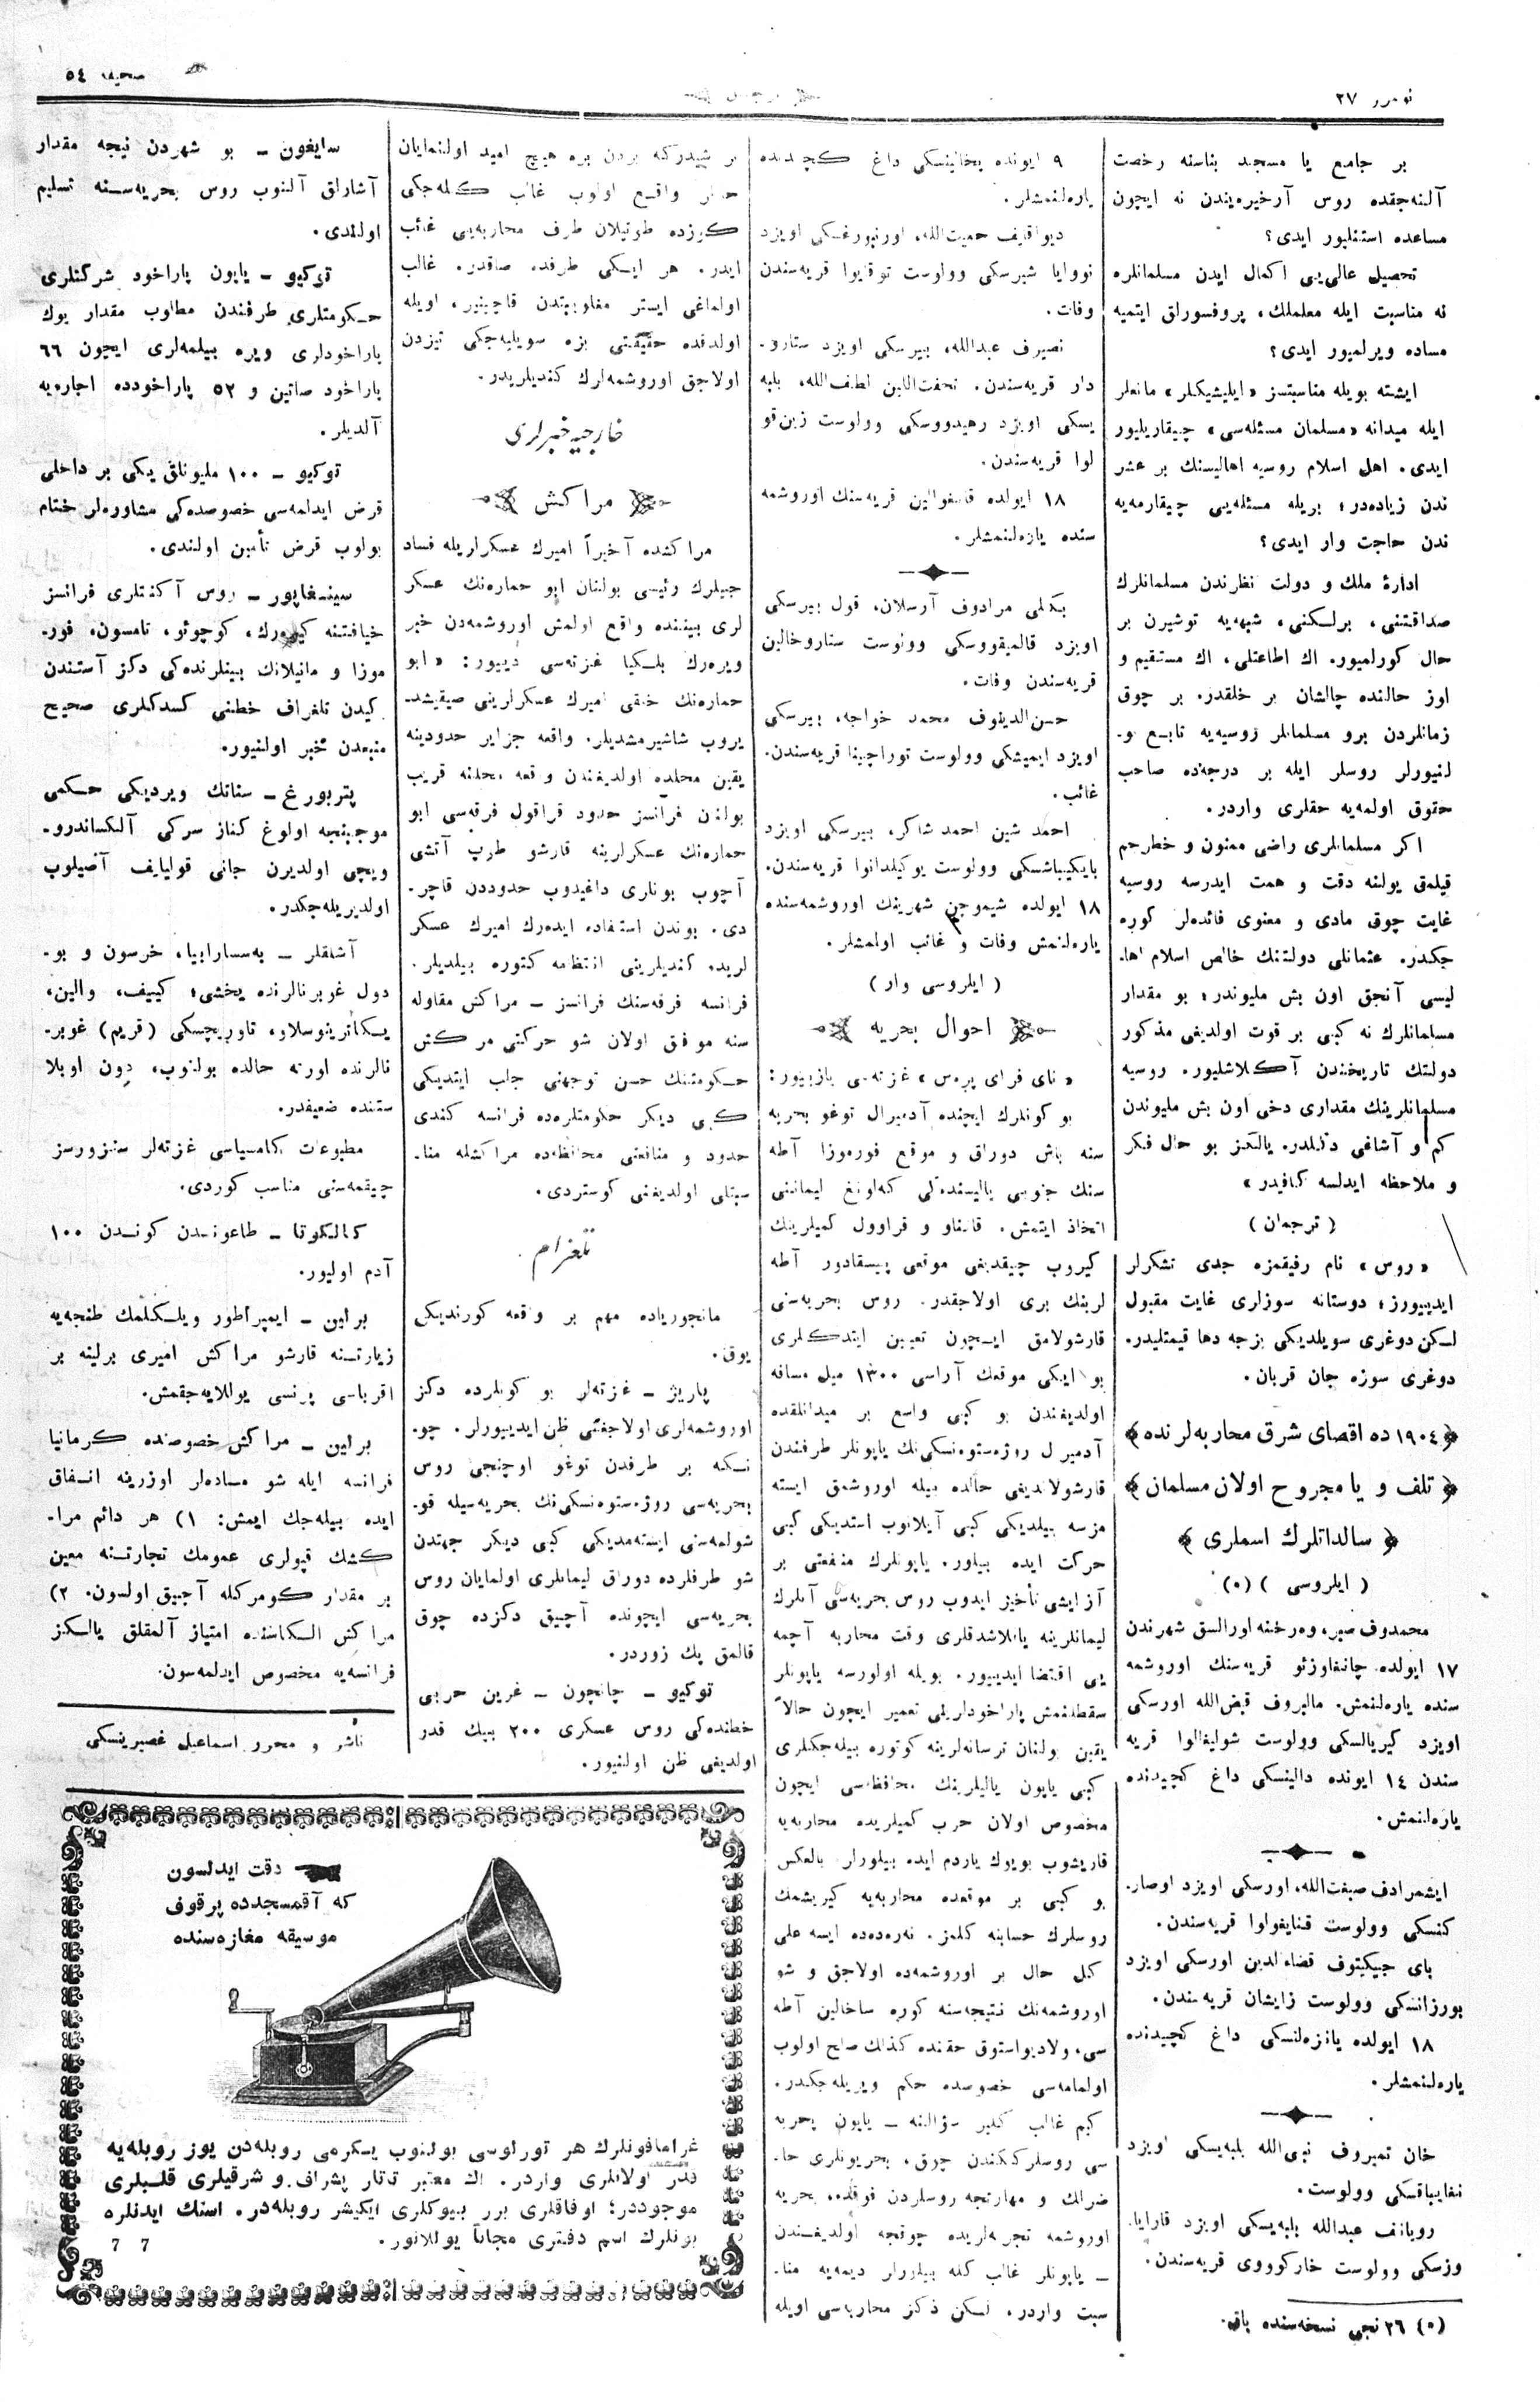 نومرو ٢٧
ترجمان
صحیفه ٥٤
بر جامع یا مسجد بناسنه رخصت
آلنه‌جقده روس آرخیره‌یندن نه ایچون
مساعده استنلیور ایدی؟
تحصیل عالی‌یی اکمال ایدن مسلمانلره
نه مناسبت ایله معلملك، پروفسوراق ایتمیه
مساده ویرلمیور ایدی؟
ایشته بویله مناسبتسز «ایلیشیکلر» مانعلر
ایله میدانه «مسلمان مسئله‌سی» چیقاریلیور
ایدی. اهل اسلام روسیه اهالیسنك بر عشر
ندن زیاده‌در؛ بریله مسئله‌یی چیقارمه‌یه
ندن حاجت وار ایدی؟
ادارهٔ ملك و دولت نظرندن مسلمانلرك
صداقتنی، برلكنی، شبهه‌یه توشیرن بر
حال كورلمیور. اك اطاعتلی، اك مستقیم و
اوز حالنده چالشان بر خلقدر. بر چوق
زمانلردن برو مسلمانلر روسیه‌یه تابع بو-
لنیورلر روسلر ایله بر درجه‌ده صاحب
حقوق اولمه‌یه حقلری واردر.
اكر مسلمانلری راضی ممنون و خطرجم
قیلمق یولنه دقت و همت ایدرسه روسیه
غایت چوق مادی و معنوی فائده‌لر كوره
جكدر. عثمانلی دولتنك خالص اسلام اها-
لیسی آنجق اون بش ملیوندر؛ بو مقدار
مسلمانلرك نه كبی بر قوت اولدیغی مذكور
دولتك تاریخندن آكلاشلیور. روسیه
مسلمانلرینك مقداری دخی اون بش ملیوندن
كم و آشاغی دكلدر. یالكز بو حال فكر
و ملاحظه ایدلسه كافیدر»
(ترجمان)
«روس» نام رفیقمزه جدی تشكرلر
ایدییورز؛ دوستانه سوزلری غایت مقبول
لكن دوغری سویلدیكی بزجه دها قیمتلیدر.
دوغری سوزه جان قربان.
﴿١٩٠٤ ده اقصای شرق محاربه‌لرنده﴾
﴿تلف و یا مجروح اولان مسلمان﴾
﴿سالداتلرك اسملری﴾
(ایلروسی) (*)
محمدوف صبر، وه‌رخنه اورالسق شهرندن
١٧ ایولده چانفاوزئو قریه‌سنك اوروشمه
سنده یاره‌لنمش. مالیروف قبض‌الله اورسكی
اویزد كیریالسكی وولوست شولیغالوا قریه
سندن ١٤ ایونده دالینسكی داغ كچیدنده
یاره‌لنمش.
ایشمرادف صبغت‌الله، اورسكی اویزد اوصار-
كنسكی وولوست قنایغولوا قریه‌سندن.
بای جیكیتوف قضاءالدین اورسكی اویزد
بورزانسكی وولوست زایشان قریه‌سندن.
١٨ ایولده یانزه‌لنسكی داغ كچیدنده
یاره‌لنمشلر.
خان تمیروف نبی‌الله بلبه‌یسكی اویزد
نغایباقسكی وولوست.
روبانف عبدالله بلبه‌یسكی اویزد قارایا-
وزسكی وولوست خاركوووی قریه‌سندن.
(*) ٢٦ نجی نسخه‌سنده باق.
٩ ایونده یخالینسكی داغ كچیدنده
یاره‌لنمشلر.
دیواقایف حمیت‌الله، اورنبورغسكی اویزد
نووایا شیرسكی وولوست توقایوا قریه‌سندن
وفات.
نصیرف عبدالله، بیرسكی اویزد ستارو-
دار قریه‌سندن. تحفت‌الدین لطف‌الله، بلبه
یسكی اویزد رهیدووسكی وولوست زین‌قو
لوا قریه‌سندن.
١٨ ایولده قانغوالین قریه‌سنك اوروشمه
سنده یاره‌لنمشلر.
بكلمی مرادوف آرسلان، قول بیرسكی
اویزد قالمیقووسكی وولوست ستاروخالین
قریه‌سندن وفات.
حسن‌الدینوف محمد خواجه، بیرسكی
اویزد ایمیشكی وولوست توراچینا قریه‌سندن.
غائب.
احمد شین احمد شاكر، بیرسكی اویزد
بایكیباشسكی وولوست یوكیلدانوا قریه‌سندن.
١٨ ایولده شیموجن شهرینك اوروشمه‌سنده
یاره‌لنمش وفات و غائب اولمشلر.
(ایلروسی وار)
احوال بحریه
«نای فرای پرس» غزته‌سی یازییور:
بو كونلرك ایچنده آدمیرال توغو بحریه
سنه باش دوراق و موقع فورموزا آطه
سنك جنوبی یالیسنده‌كی كه‌لونغ لیماننی
اتخاذ ایتمش. قانفاو و قراوول كمیلرینك
كیروب چیقدیغی موقعی پیسقادور آطه
لرینك بری اولاجقدر. روس بحریه‌سنی
قارشولامق ایچون تعیین ایتدكلری
بو ایكی موقعك آراسی ١٣٠٠ میل مسافه
اولدیغندن بو كبی واسع بر میدانلقده
آدمیرال روژه‌ستوه‌نسكی‌نك یاپونلر طرفندن
قارشولاندیغی حالده بیله اوروشمق ایسته
مزسه بیلدیكی كبی آیلانوب استدیكی كبی
حركت ایده بیلور. یاپونلرك منفعتی بر
آز ایشی تأخیر ایدوب روس بحریه‌سی آنلرك
لیمانلرینه یاقلاشدقلری وقت محاربه آچمه
یی اقتضا ایدییور. بویله اولورسه یاپونلر
سقطلنمش پاراخودلرینی تعمیر ایچون حالا
یقین بولنان ترسانه‌لرینه كوتوره بیله‌جكلری
كبی یاپون یالیلرینك محافظه‌سی ایچون
مخصوص اولان حرب كمیلریده محاربه‌یه
قاریشوب بویوك یاردم ایده بیلورلر. بالعكس
بو كبی بر موقعده محاربه‌یه كیریشمك
روسلرك حسابنه كلمز. نه‌ره‌ده‌ده ایسه علی
كل حال بر اوروشمه‌ده اولاجق و شو
اوروشمه‌نك نتیجه‌سنه كوره ساخالین آطه
سی، ولادیواستوق حقنده كذالك صلح اولوب
اولمامه‌سی خصوصده حكم ویریله‌جكدر.
كیم غالب كلیر سؤالنه — یاپون بحریه
سی روسلركیندن چوق، بحریونلری حا-
ضرلك و مهارتجه روسلردن فوقده، بحریه
اوروشمه تجربه‌لریده چوقجه اولدیغندن
— یاپونلر غالب كله بیلورلر دیمه‌یه منا-
سبت واردر. لكن دكز محاربه‌سی اویله
بر شیدركه بردن بره هیچ امید اولنمایان
حاللر واقع اولوب غالب كله‌جكی
كوزده طوتیلان طرف محاربه‌یی غائب
ایدر. هر ایكی طرفده صاقدر. غالب
اولماغی ایستر مغلوبیتدن قاچینیر، اویله
اولدقده حقیقتی بزه سویلیه‌جكی تیزدن
اولاجق اوروشمه‌لرك كندیلریدر.
خارجیه خبرلری
مراكش
مراكشده آخیراً امیرك عسكراریله فساد
جیلرك رئیسی بولنان ابو حماره‌نك عسكر
لری بیننده واقع اولمش اوروشمه‌دن خبر
ویره‌رك بلكیا غزته‌سی دییور: «ابو
حماره‌نك خلقی امیرك عسكرلرینی صیقیشد-
یروب شاشیرمشدیلر. واقعه جزایر حدودینه
یقین محلده اولدیغندن وقعه محلنه قریب
بولنن فرانسز حدود قراقول فرقه‌سی ابو
حماره‌نك عسكرلرینه قارشو طوپ آتشی
آچوب بونلری داغیدوب حدوددن قاچر-
دی. بوندن استفاده ایده‌رك امیرك عسكر
لریده كندیلرینی انتظامه كتوره بیلدیلر.
فرانسه فرقه‌سنك فرانسز — مراكش مقاوله
سنه موفق اولان شو حركتی مراكش
حكومتنك حسن توجهنی جلب ایتدیكی
كبی دیكر حكومتلره‌ده فرانسه كندی
حدود و منافعنی محافظه‌ده مراكشله منا-
سبتلی اولدیغنی كوستردی.
تلغرام
مانجوریاده مهم بر واقعه كورندیكی
یوق.
پاریژ — غزته‌لر بو كونلرده دكز
اوروشمه‌لری اولاجغنی ظن ایدییورلر. چو-
نسكه بر طرفدن توغو اوچنجی روس
بحریه‌سی روژه‌ستوه‌نسكی‌نك بحریه‌سیله قو-
شولمه‌سنی ایسته‌مدیكی كبی دیكر جهتدن
شو طرفلرده دوراق لیمانلری اولمایان روس
بحریه‌سی ایچونده آچیق دكزده چوق
قالمق پك زوردر.
توكیو — چانچون — غرین حربی
خطنده‌كی روس عسكری ٢٠٠ بیك قدر
اولدیغی ظن اولنیور.
سایغون — بو شهردن نیجه مقدار
آشاراق آلنوب روس بحریه‌سنه تسلیم
اولندی.
توكیو — یاپون پاراخود شركتلری
حكومتلری طرفندن مطلوب مقدار یوك
پاراخودلری ویره بیلمه‌لری ایچون ٦٦
پاراخود صاتین و ٥٢ پاراخودده اجاره‌یه
آلدیلر.
توكیو — ١٠٠ ملیونلق یكی بر داخلی
قرض ایدلمه‌سی خصوصده‌كی مشاوره‌لر ختام
بولوب قرض تأمین اولندی.
سینغاپور — روس آكنتلری فرانسز
خیافتنه كیره‌رك، كوچوئو، نامسون، فور-
موزا و مانیلانك بینلرنده‌كی دكز آستندن
كیدن تلغراف خطنی كسدكلری صحیح
منبعدن خبر اولنیور.
پتربورغ — سناتك ویردیكی حكمی
موجبنجه اولوغ كناز سركی آلكساندرو-
ویچی اولدیرن جانی قولیایف آصیلوب
اولدیریله‌جكدر.
آشلقلر — به‌سسارابیا، خرسون و بو-
دول غوبرنالرنده یخشی؛ كییف، والین،
یكاترینوسلاو، تاوریچسكی (قریم) غوبر-
نالرنده اورته حالده بولنوب، دون اوبلا
ستنده ضعیفدر.
مطبوعات كامسیاسی غزته‌لر سنزورسز
چیقمه‌سنی مناسب كوردی.
كالیكوتا — طاعوندن كوندن ١٠٠
آدم اولیور.
براین — ایمپراطور ویلكلمك طنجه‌یه
زیارتنه قارشو مراكش امیری برلینه بر
اقرباسی پرنسی یوللایه‌جقمش.
براین — مراكش خصوصنده كرمانیا
فرانسه ایله شو مساده‌لر اوزرینه اتفاق
ایده بیله‌جك ایمش: ١) هر دائم مرا-
كشك قپولری عمومك تجارتنه معین
بر مقدار كومركله آچیق اولسون. ٢)
مراكش السكاسنده امتیاز آلمقلق یالكز
فرانسه‌یه مخصوص ایدلمه‌سون.
ناشر و محرر اسماعیل غصپرینسكی
دقت ایدلسون
كه آقمسجدده پرقوف
موسیقه مغازه‌سنده
غرامافونلرك هر تورلوسی بولنوب یسكرمی روبله‌دن یوز روبله‌یه
قدر اولانلری واردر. اك معتبر تاتار پشراف و شرقیلری قلبلری
موجوددر؛ اوفاقلری برر بیوكلری ایكیشر روبله‌در. استك ایدنلره
بونلرك اسم دفتری مجاناً یوللانور.
7 7